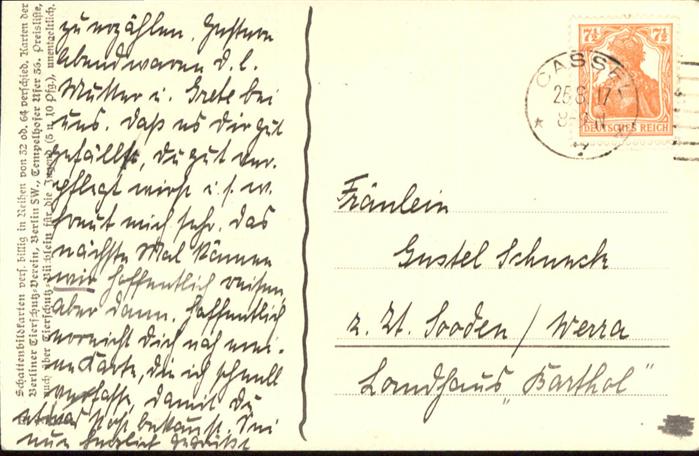 Schattenbildkarten vers. billig in Reihen von 32 od. 64 verschied. Karten der
Berliner Tierschutz-Verein, Berlin SW., Tempelhofer Ufer 36. Preisliste,
auch über Tierschutz-Büchlein für die Jugend (5 u. 10 Pfg.), unentgeltlich.
zu erzählen. Gestern
Abend waren d. l.
Mutter u. Grete bei
uns. Daß es dir gut
gefällt, du gut ver-
pflegt wirst u. s. w.
freut mich sehr. Das
nächste Mal können
wir hoffentlich reisen,
aber dann. Hoffentlich
erreicht dich noch mei-
ne Karte, die ich schnell
verfasse, damit du
etwas Post bekommst. Sei
nun herzlich gegrüßt
7½ 7½
DEUTSCHES REICH
CASSEL
25.8.17
8-9 N
Fräulein
Gustel Schunck
z. Zt. Sooden / Werra
Landhaus „Barthol"